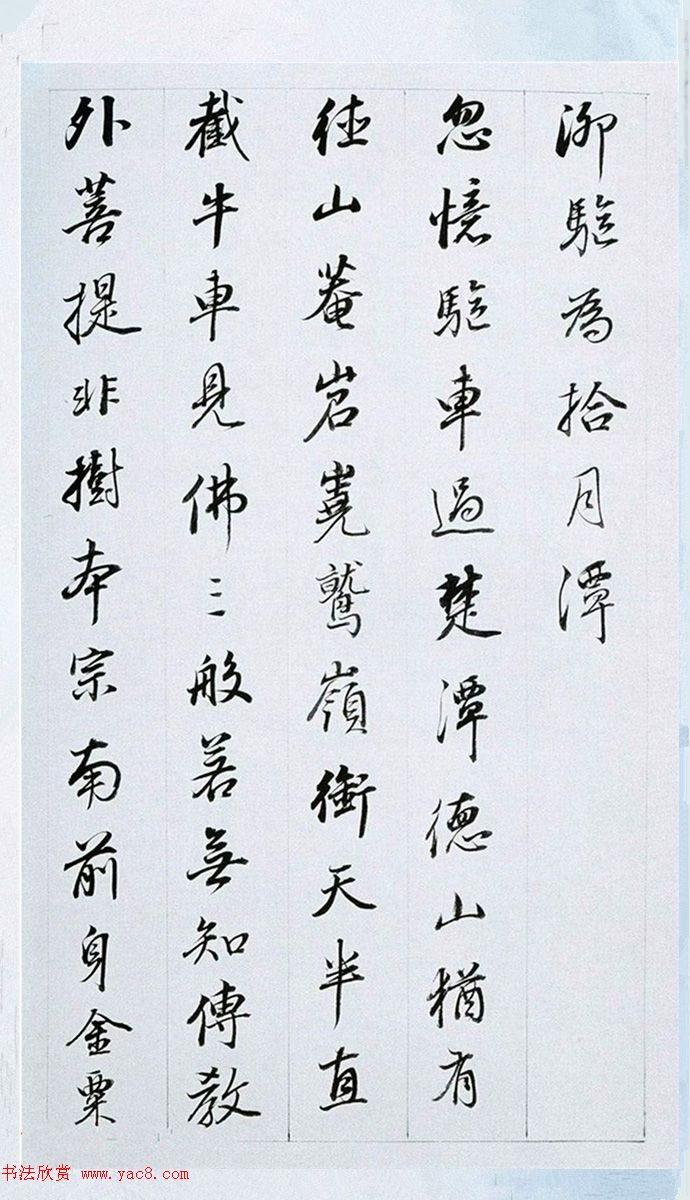 泖駝為拾月潭
忽憶駝車過楚潭德山猶有
往山菴岩嶤鷲嶺銜天半直
截牛車見佛三般若無知傳教
外菩提非樹本宗南前身金粟
书法欣赏 www.yac8.com